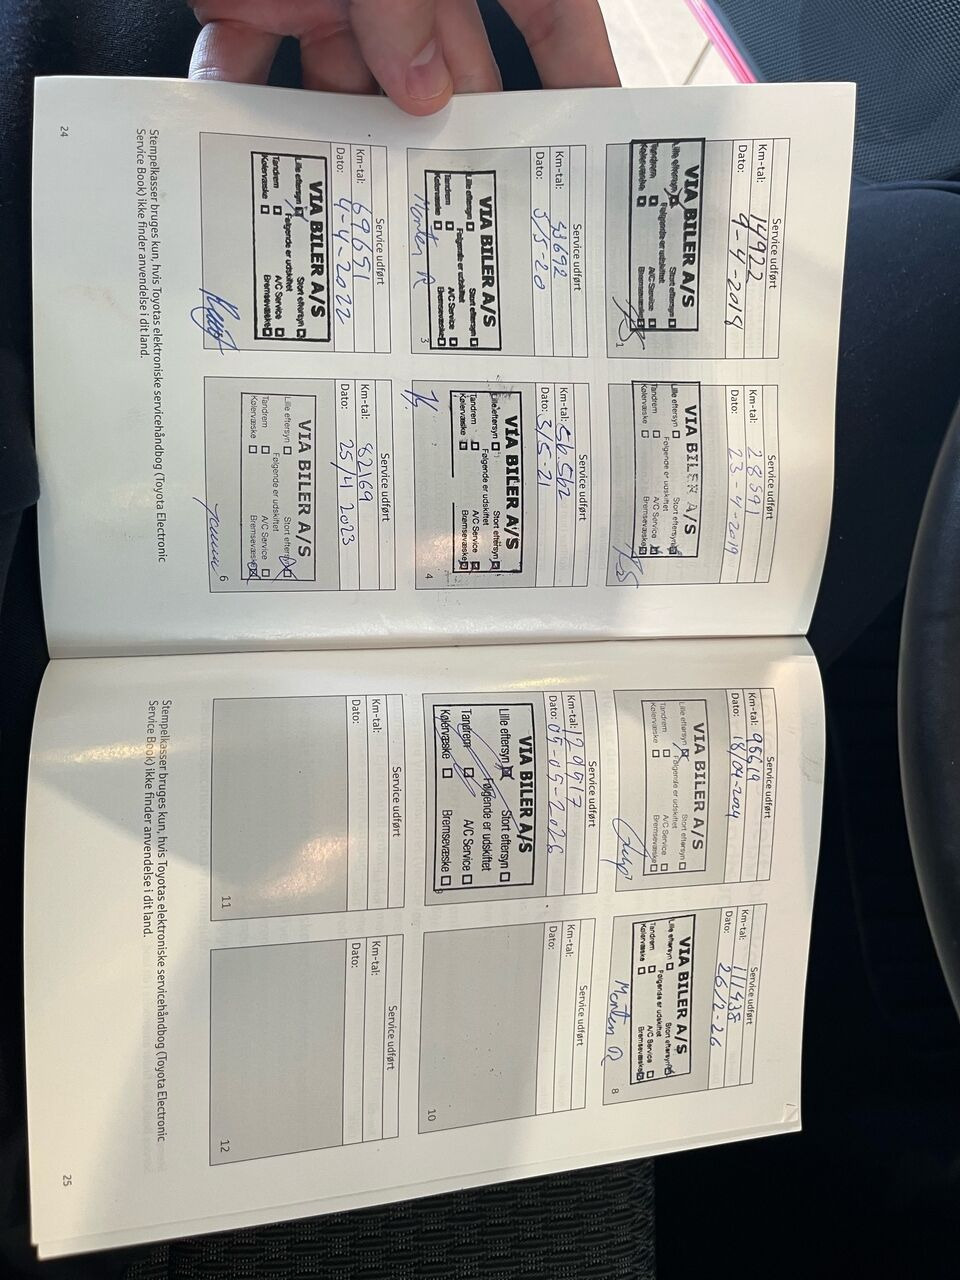 Service udført
Km-tal: 14922
Dato: 4-4-2018
VIA BILER A/S
Lille eftersyn Stort eftersyn
Følgende er udskiftet
Tandrem A/C Service
Kølervæske Bremsevæske
1
Service udført
Km-tal: 28391
Dato: 23-4-2019
VIA BILER A/S
Lille eftersyn Stort eftersyn
Følgende er udskiftet
Tandrem A/C Service
Kølervæske Bremsevæske
Service udført
Km-tal: 43692
Dato: 5/5-20
VIA BILER A/S
Lille eftersyn Stort eftersyn
Følgende er udskiftet
Tandrem A/C Service
Kølervæske Bremsevæske
Morten R
3
Service udført
Km-tal: 56562
Dato: 3/5-21
VIA BILER A/S
Lille eftersyn Stort eftersyn
Følgende er udskiftet
Tandrem A/C Service
Kølervæske Bremsevæske
4
Service udført
Km-tal: 69651
Dato: 4-4-2022
VIA BILER A/S
Lille eftersyn Stort eftersyn
Følgende er udskiftet
Tandrem A/C Service
Kølervæske Bremsevæske
Service udført
Km-tal: 82169
Dato: 25/4 2023
VIA BILER A/S
Lille eftersyn Stort eftersyn
Følgende er udskiftet
Tandrem A/C Service
Kølervæske Bremsevæske
6
Stempelkasser bruges kun, hvis Toyotas elektroniske servicehåndbog (Toyota Electronic
Service Book) ikke finder anvendelse i dit land.
24
Service udført
Km-tal: 96619
Dato: 18/04-2024
VIA BILER A/S
Lille eftersyn Stort eftersyn
Følgende er udskiftet
Tandrem A/C Service
Kølervæske Bremsevæske
7
Service udført
Km-tal: 111438
Dato: 26/2-26
VIA BILER A/S
Lille eftersyn Stort eftersyn
Følgende er udskiftet
Tandrem A/C Service
Kølervæske Bremsevæske
Morten R
8
Service udført
Km-tal: 120917
Dato: 05-05-2026
VIA BILER A/S
Lille eftersyn Stort eftersyn
Følgende er udskiftet
Tandrem A/C Service
Kølervæske Bremsevæske
9
Service udført
Km-tal:
Dato:
10
Service udført
Km-tal:
Dato:
11
Service udført
Km-tal:
Dato:
12
Stempelkasser bruges kun, hvis Toyotas elektroniske servicehåndbog (Toyota Electronic
Service Book) ikke finder anvendelse i dit land.
25